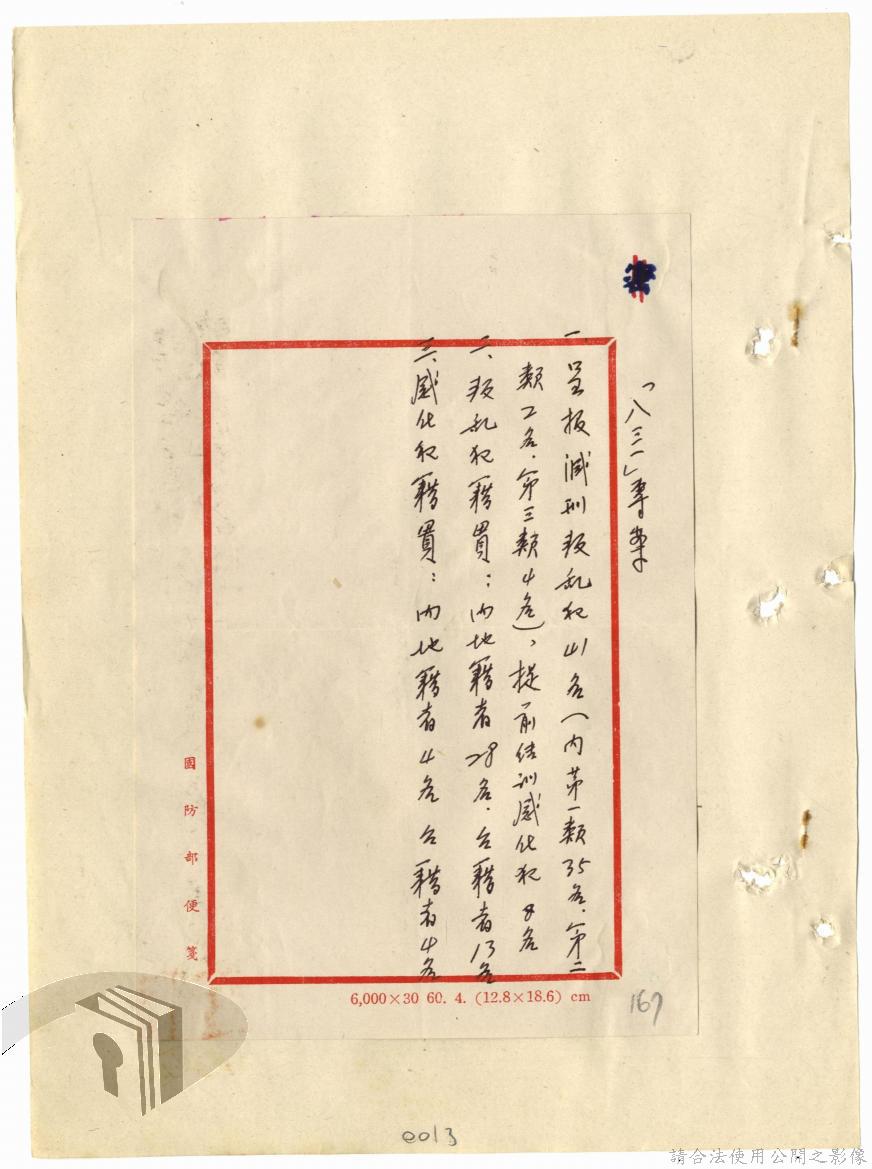 「八三一」專案
一、呈报減刑叛乱犯41名(内第一類35名.第二
類2名.第三類4名)、提前结训感化犯8名
二、叛乱犯籍貫:内地籍者28名.台籍者13名
三、感化犯籍貫:内地籍者4名 台籍者4名
國防部便箋
6,000×30 60. 4. (12.8×18.6) cm
167
0013
請合法使用公開之影像